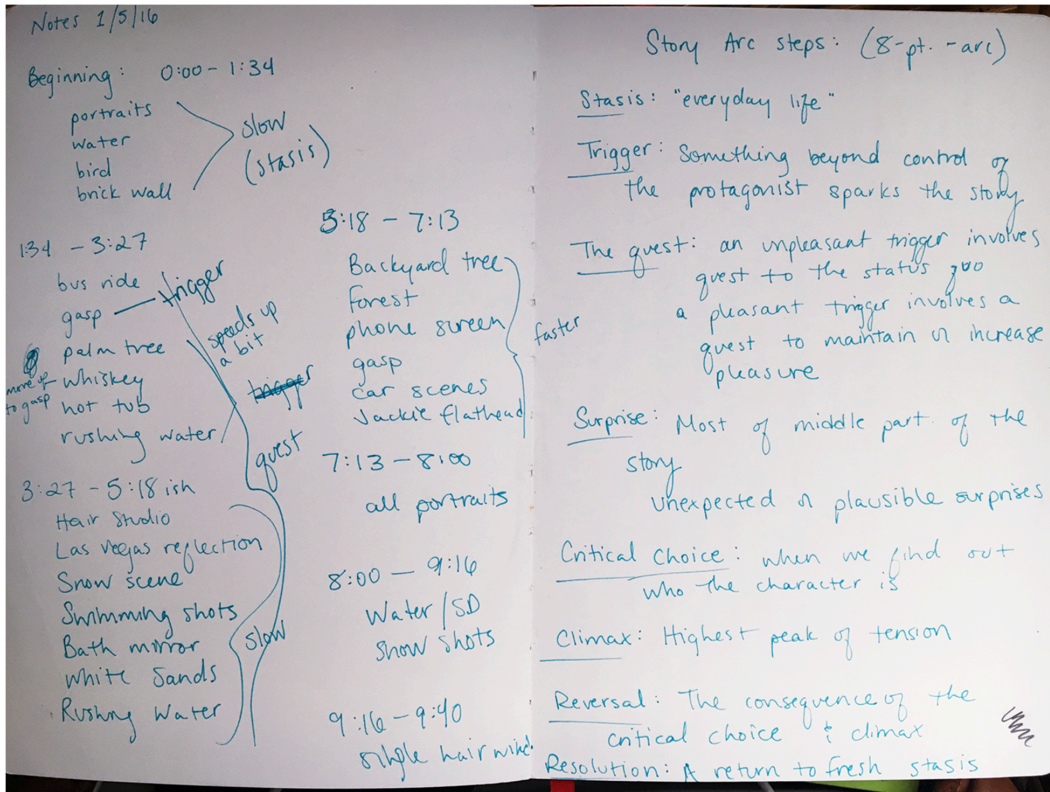 Notes 1/5/16
Beginning: 0:00 - 1:34
portraits
water
bird
brick wall
slow
(stasis)
1:34 - 3:27
bus ride
gasp
trigger
palm tree
speeds up
a bit
move up
to gasp
whiskey
trigger
hot tub
rushing water
quest
3:27 - 5:18 ish
Hair Studio
Las Vegas reflection
Snow scene
Swimming shots
Bath mirror
White Sands
Rushing Water
slow
5:18 - 7:13
Backyard tree
Forest
phone screen
gasp
car scenes
Jackie flathead
faster
7:13 - 8:00
all portraits
8:00 - 9:16
Water / SD
Snow shots
9:16 - 9:40
single hair wind
Story Arc steps: (8-pt. -arc)
Stasis: "everyday life"
Trigger: Something beyond control of
the protagonist sparks the story
The quest: an unpleasant trigger involves
quest to the status quo
a pleasant trigger involves a
quest to maintain or increase
pleasure
Surprise: Most of middle part of the
story
Unexpected or plausible surprises
Critical Choice: when we find out
who the character is
Climax: Highest peak of tension
Reversal: The consequence of the
critical choice & climax
Resolution: A return to fresh stasis